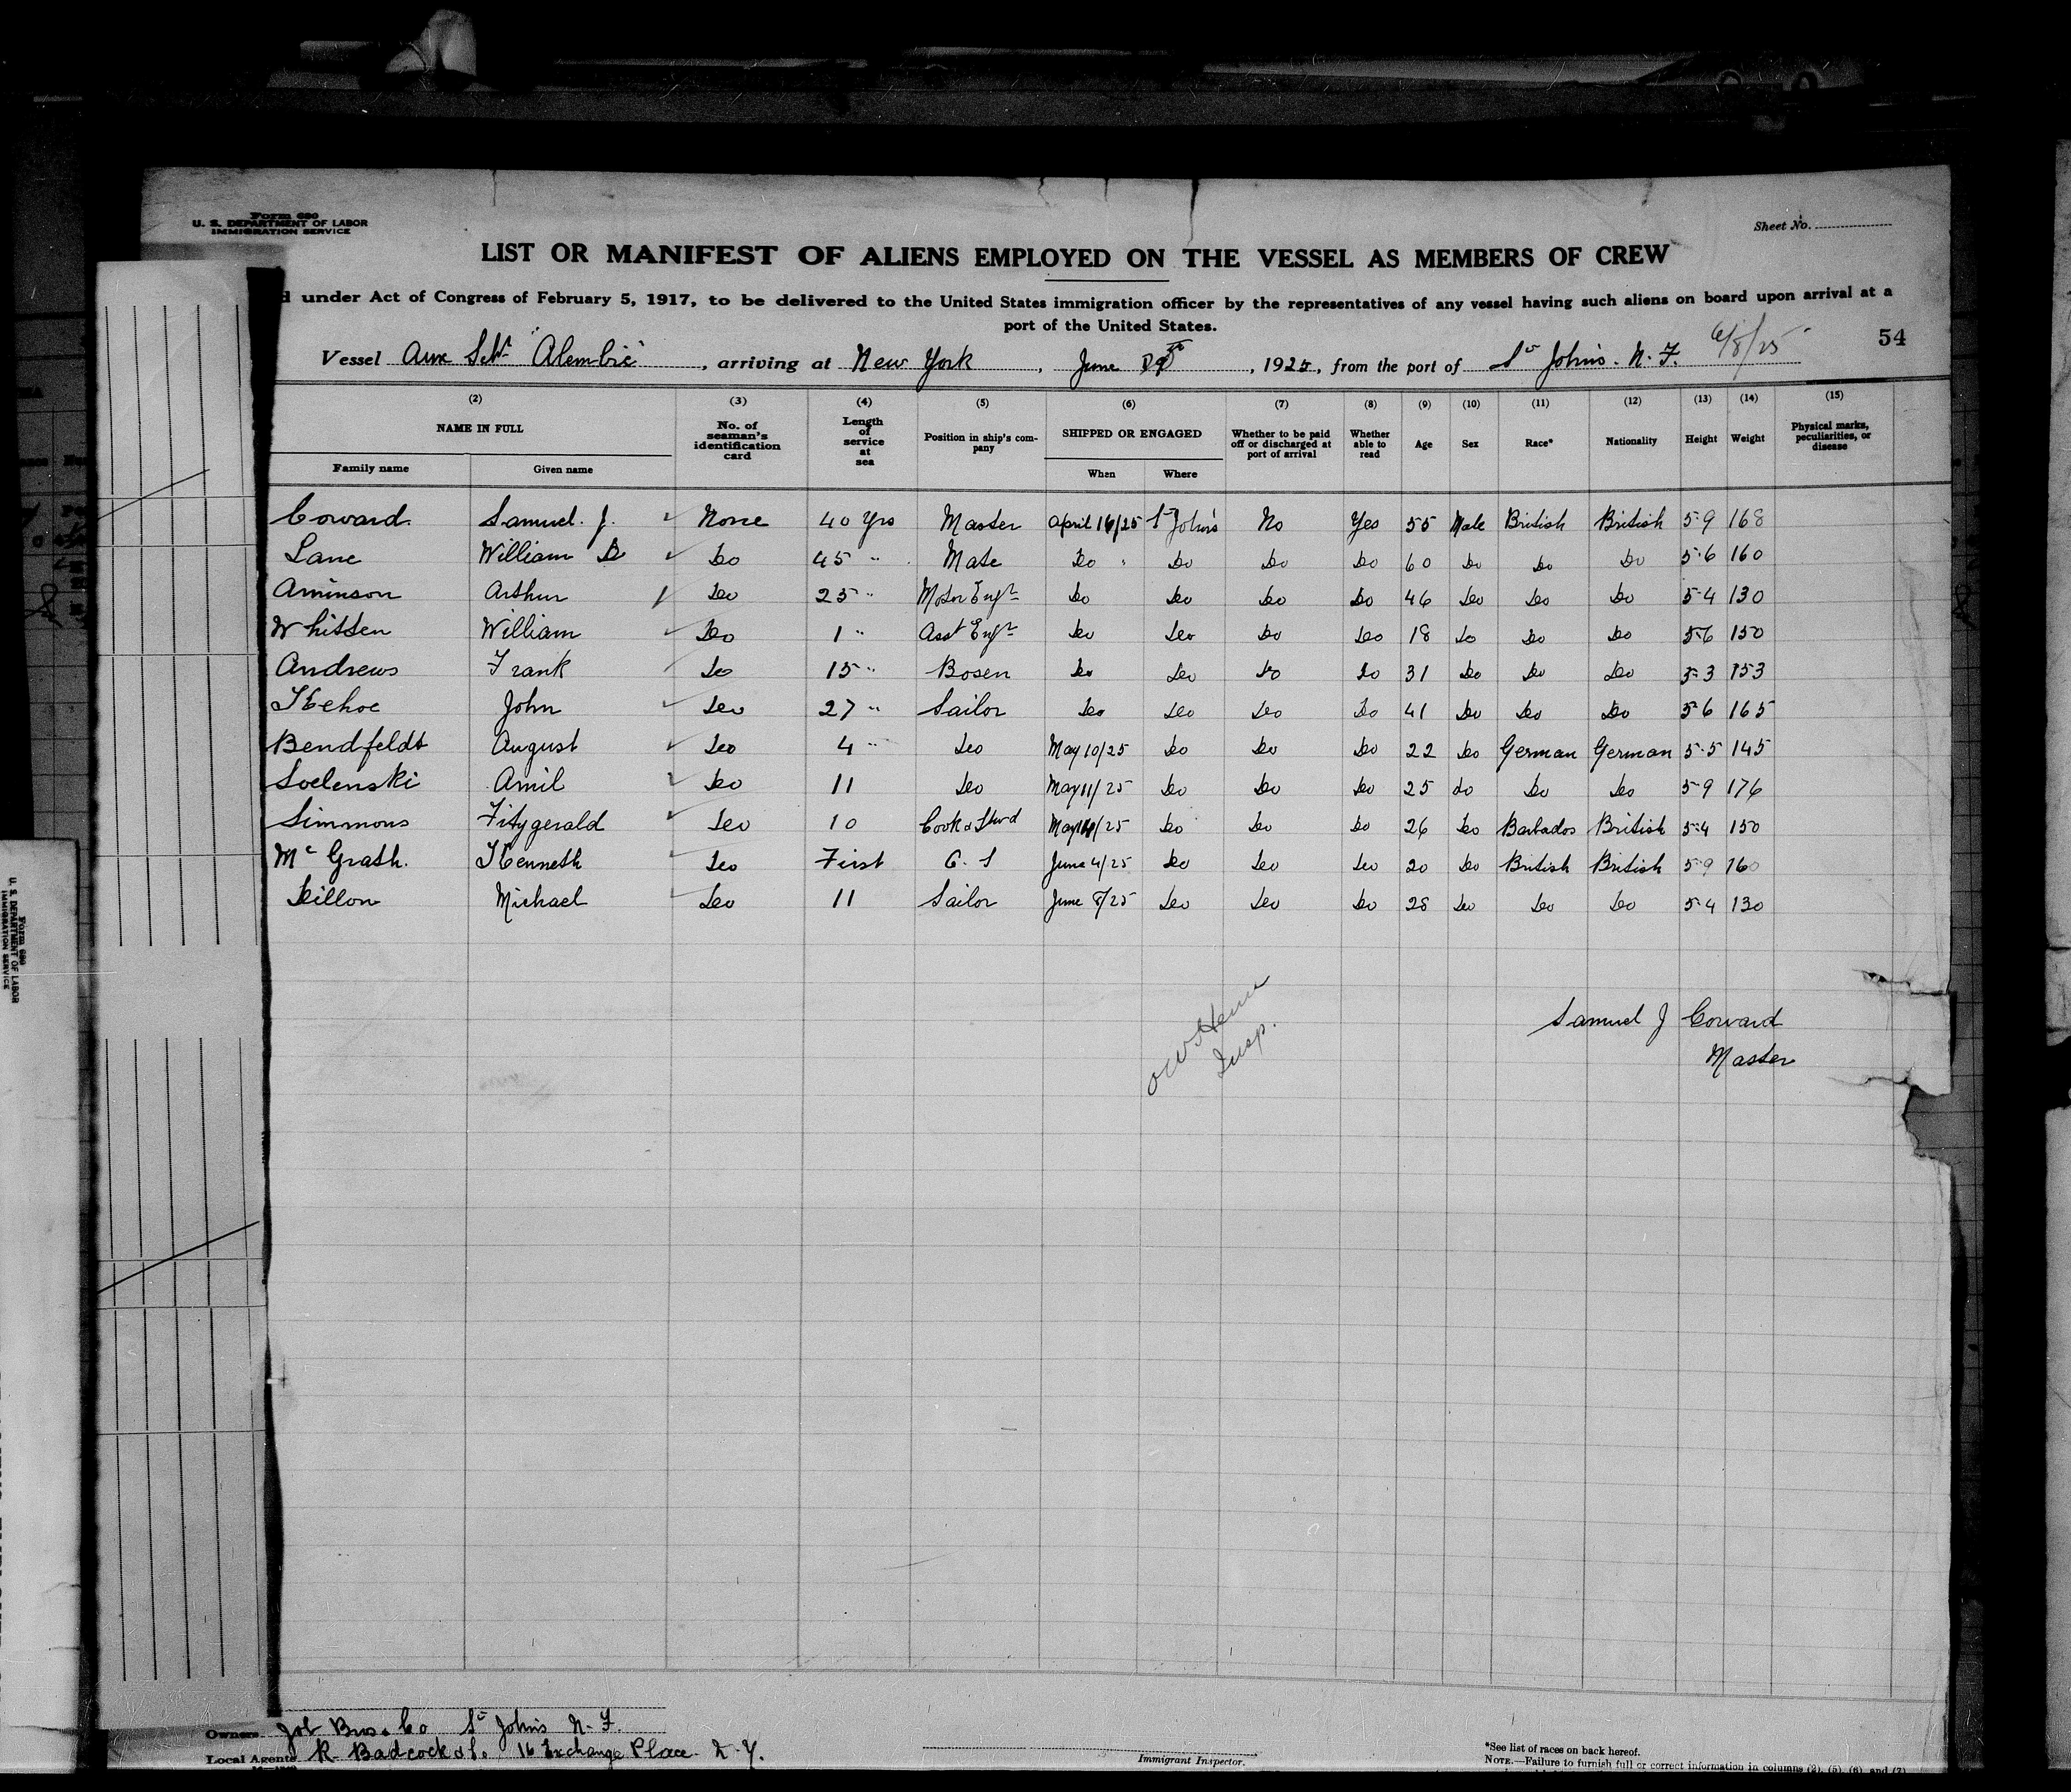 Form 680
U. S. DEPARTMENT OF LABOR
IMMIGRATION SERVICE
Sheet No.
LIST OR MANIFEST OF ALIENS EMPLOYED ON THE VESSEL AS MEMBERS OF CREW
under Act of Congress of February 5, 1917, to be delivered to the United States immigration officer by the representatives of any vessel having such aliens on board upon arrival at a
port of the United States.
6/8/25
54
Vessel Aux Schr "Alembic", arriving at New York, June, 1925, from the port of St Johns. N. F.
(2) (3) (4) (5) (6) (7) (8) (9) (10) (11) (12) (13) (14) (15)
NAME IN FULL No. of seaman's identification card Length of service at sea Position in ship's company SHIPPED OR ENGAGED Whether to be paid off or discharged at port of arrival Whether able to read Age Sex Race* Nationality Height Weight Physical marks, peculiarities, or disease
Family name Given name When Where
Coward. Samuel. J. None 40 Yrs Master April 16/25 St John's No Yes 55 Male British British 5-9 168
Lane William B Do 45 " Mate Do " Do Do Do 60 Do Do Do 5-6 160
Aminson Arthur Do 25 " Motor Engr Do Do Do Do 46 Do Do Do 5-4 130
Whitten William Do 1 " Asst Engr Do Do Do Do 18 Do Do Do 5-6 150
Andrews Frank Do 15 " Bosen Do Do Do Do 31 Do Do Do 5-3 153
Kehoe John Do 27 " Sailor Do Do Do Do 41 Do Do Do 5-6 165
Bendfeldt August Do 4 " Do May 10/25 Do Do Do 22 Do German German 5-5 145
Soelenski Amil Do 11 Do May 11/25 Do Do Do 25 do Do Do 5-9 176
Simmons Fitzgerald Do 10 Cook & Stwd May 14/25 Do Do Do 26 Do Barbados British 5-4 150
McGrath. Kenneth Do First O. S June 4/25 Do Do Do 20 Do British British 5-9 160
Dillon Michael Do 11 Sailor June 8/25 Do Do Do 28 Do Do Do 5-4 130
Insp.
Samuel J Coward
Master
Owners Job Bros & Co St Johns N. F.
Local Agents R. Badcock & Co 16 Exchange Place N. Y.
Immigrant Inspector.
*See list of races on back hereof.
NOTE.—Failure to furnish full or correct information in columns (2), (5), (6), and (7)
Form 680
U. S. DEPARTMENT OF LABOR
IMMIGRATION SERVICE